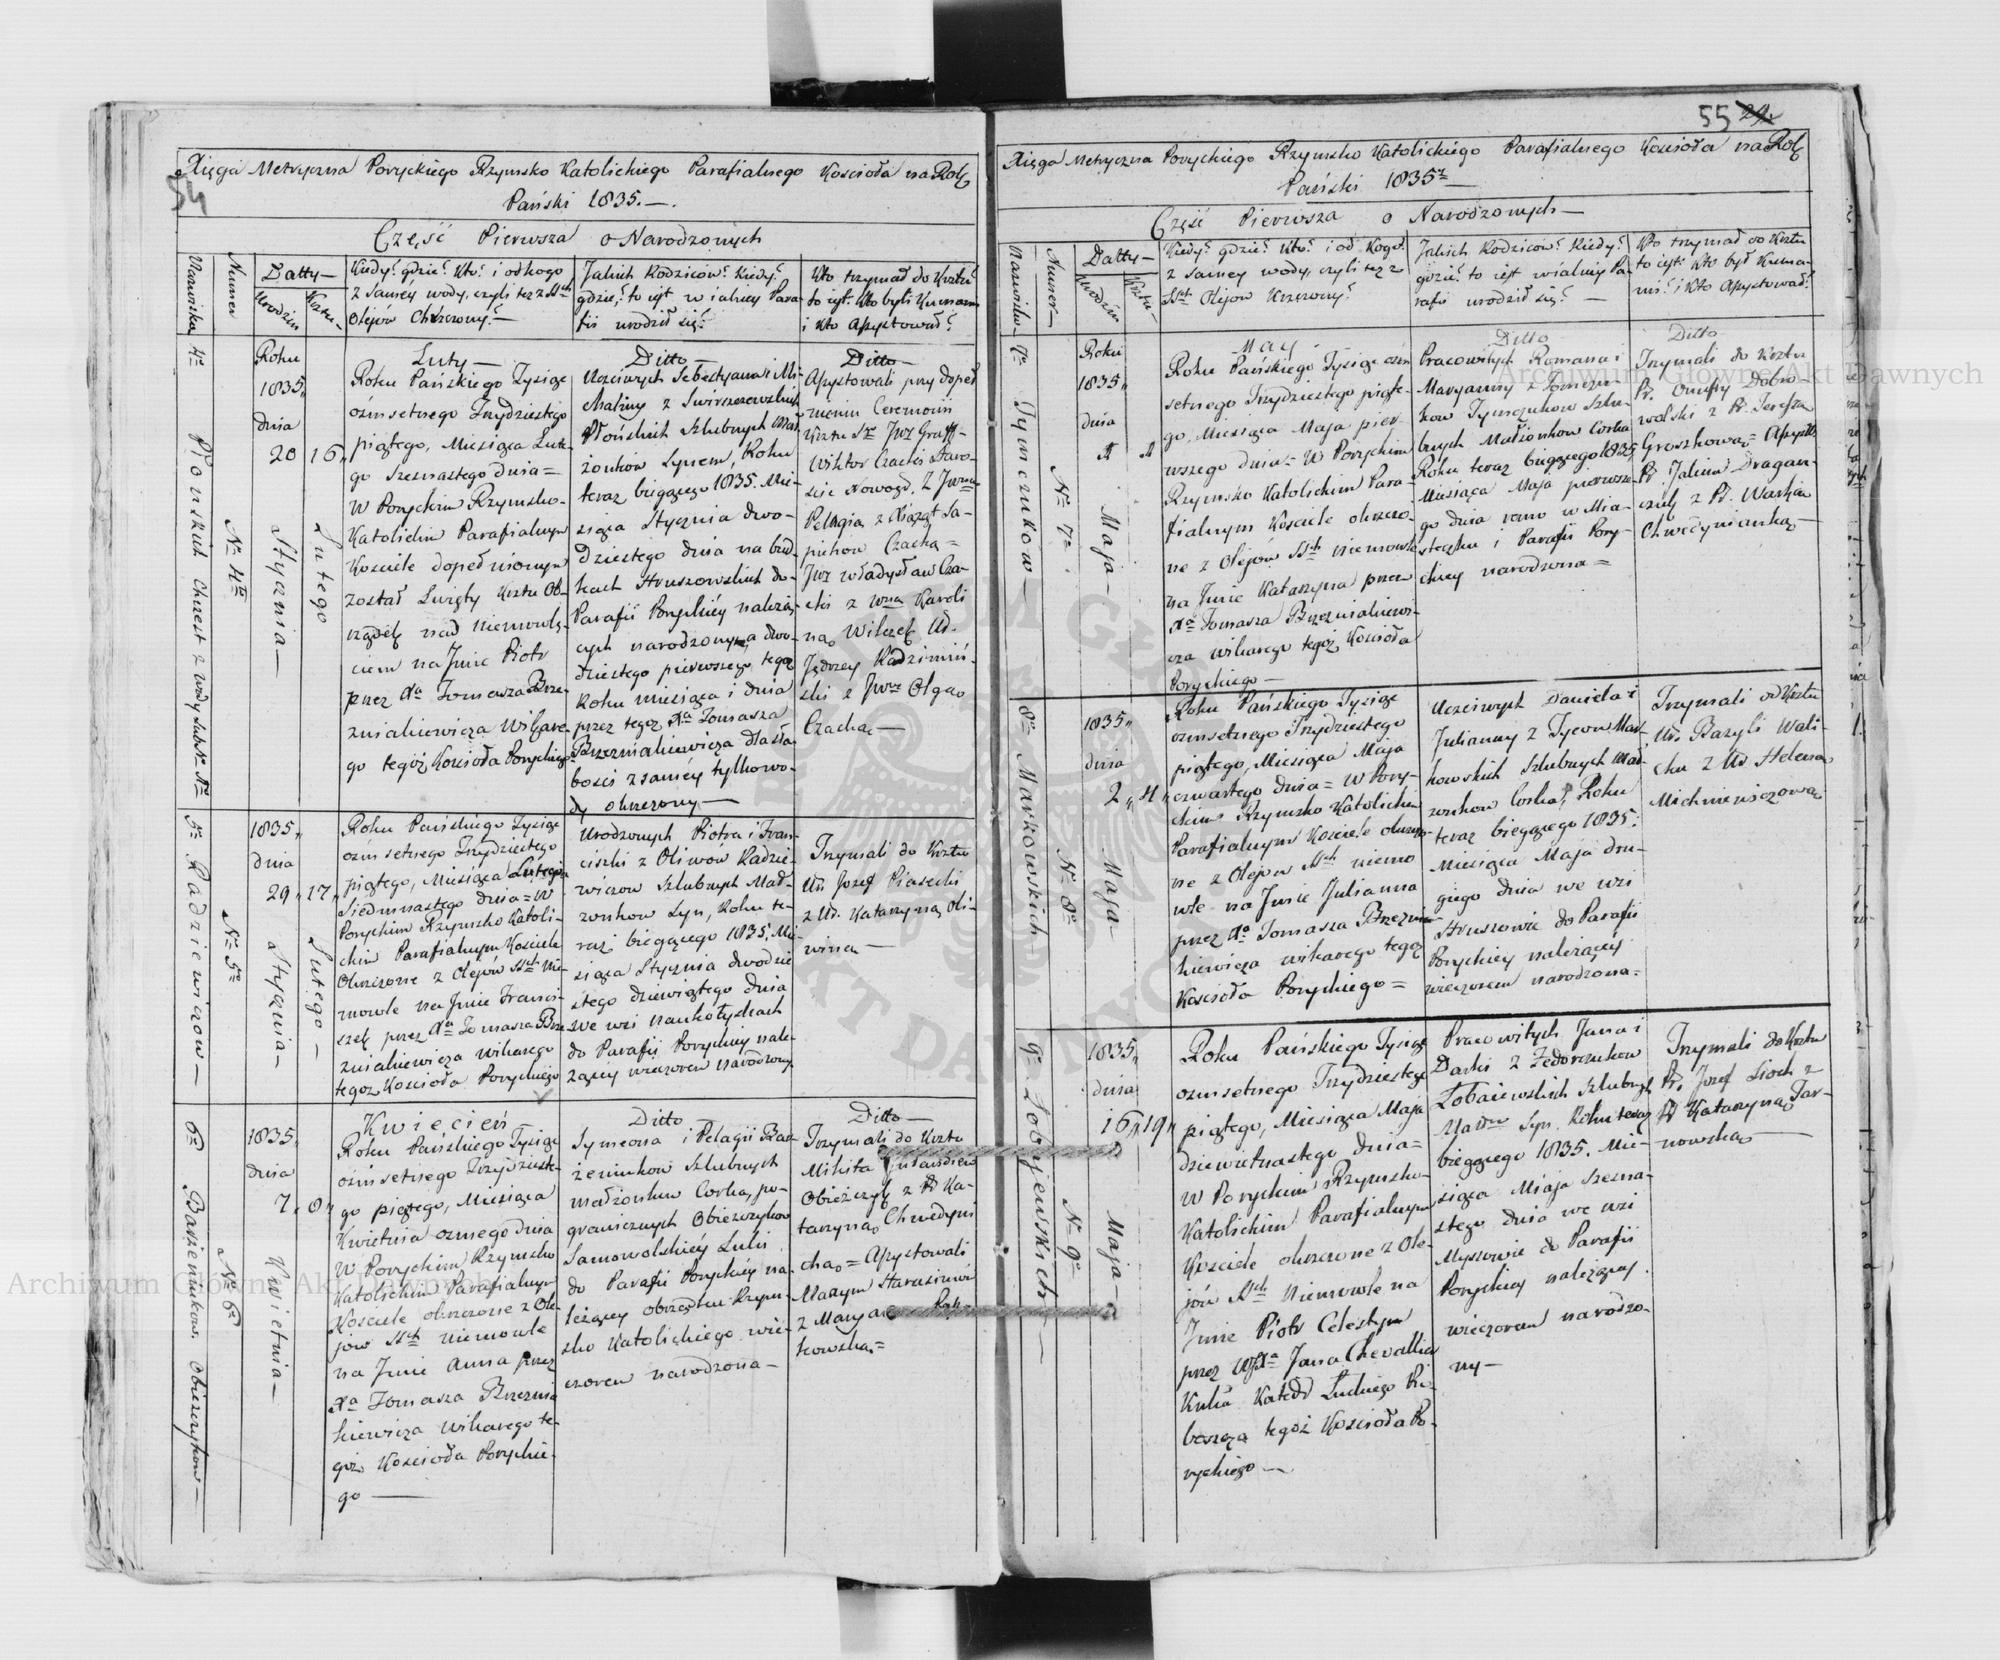 Xięga Metryczna Poryckiego Rzymsko Katolickiego Parafialnego Kościoła na Rok
54
Pański 1835.—.
Część Pierwsza o Narodzonych
Nazwiska
Numer
Datty—
Urodzin
Krztu—
Kiedy? gdzie? Kto? i od kogo
z samey wody, czyli też z SSch
Olejow Chrzczony?—
Jakich Rodzicow? Kiedy?
gdzie? to iest w iakiey Para-
fii urodził się?
Kto trzymał do Krztu?
to iest: Kto byli Kumami
i kto Assystował?
4te Płonskich Chrzest z wody
Nr 4te
Roku
1835,,
dnia
20
16,,
Stycznia—
Lutego
Luty—
Roku Pańskiego Tysiąc
ośmsetnego Trzydziestego
piątego, Miesiąca Lute-
go Szesnastego dnia=
W Poryckim Rzymsko-
Katolickim Parafialnym
Kościele dopełnionym
został Święty Krztu Ob-
rządek nad Niemowlę-
ciem na Jmie Piotr
przez Xa Tomasza Brze-
zniakiewicza Wikare-
go tegoż Kościoła Poryckiego
Ditto—
Uczciwych Sebestyana i Mi-
chaliny z Swirszczewskich
Płońskich Szlubnych Mał-
żonków Synem, Roku
teraz biegącego 1835. Mie-
siąca Stycznia dwu-
dziestego dnia na bud-
kach Struszowskich do
Parafii Poryckiey należą-
cych narodzonym, a dwu-
dziestego pierwszego tegoż
Roku miesiąca i dnia
przez tegoż Xa Tomasza
Brzezniakiewicza dla sła-
bości z samey tylko wo-
dy okrzczony—
Ditto—
Assystowali przy dopeł-
nieniu Ceremonii
Krztu S. JW Graff-
Wiktor Czacki Staro-
sta Nowogr. z JWną
Pelagią z Xiążąt Sa-
piehow Czacką=
JW Władysław Cza-
cki z Wną Karoli
ną Wilczek Ur.
Jędrzey Kadzimiń-
ski z JWną Olgą
Czacką—
5te Radziewiczow—
Nr 5te
1835,,
dnia
29,,
17,,
Stycznia—
Lutego—
Roku Pańskiego Tysiąc
ośmsetnego Trzydziestego
piątego, Miesiąca Lutego
Siedmnastego dnia=W
Poryckim Rzymsko Katoli-
ckim Parafialnym Kościele
Okrzczone z Olejów SSch Nie-
mowle na Jmie Franci-
szek przez Xa Tomasza Brze-
zniakiewicza Wikarego
tegoż Kościoła Poryckiego
Urodzonych Piotra i Fran-
ciszki z Oliwów Radzie-
wiczow Szlubnych Mał-
żonkow Syn, Roku te-
raz biegącego 1835. Mie-
siąca Stycznia dwudzie
stego dziewiątego dnia
we wsi
do Parafii Poryckiey nale-
żącey wieczorem narodzony
Trzymali do Krztu
Ur. Jozef Piasecki
z Ur. Katarzyną Oli-
wina—
6te Bazieninkow Obieszczykow—
Nr 6te
1835,,
dnia
7,,
8,,
Kwietnia—
Kwiecień
Roku Pańskiego Tysiąc
ośmsetnego Trzydzieste-
go piątego, Miesiąca
Kwietnia osmego dnia
W Poryckim Rzymsko
Katolickim Parafialnym
Kościele okrzczone z Ole-
jow SSch niemowle
na Jmie Anna przez
Xa Tomasza Brzeznia
kiewicza Wikarego te-
goż Kościoła Porycki-
go—
Ditto
Symeona i Pelagii Ba-
żeninkow Szlubnych
małżonkow Corka, po-
granicznych Obiezczykow
Samowolskiey
do Parafii Poryckiey na-
leżącey obrządku Rzym-
sko Katolickiego wie-
czorem narodzona—
Ditto—
Trzymali do Krztu
Mikita
Obieżczyk z Pr Ka-
tarzyną Chwedyni
cką=Assystowali
z Maryanną
kowską=
55
Xięga Metryczna Poryckiego Rzymsko Katolickiego Parafialnego Kościoła na Rok
Pański 1835—
Część Pierwsza o Narodzonych—
Nazwiska
Numer—
Datty—
Urodzin
Krztu—
Kiedy? gdzie? Kto? i od Kogo?
z samey wody, czyli też z
SSch Olejow Krzczony?
Jakich Rodzicow? Kiedy?
gdzie? to iest w iakiey Pa-
rafii urodził się?—
Kto trzymał do Krztu
to iest: Kto był Kuma-
mi? i kto Assystował?
7me Tymczukow—
Nr 7me
Roku
1835,,
dnia
1
1
Maja—
May
Roku Pańskiego Tysiąc ośm
setnego Trzydziestego piąte-
go, Miesiąca Maja pier-
wszego dnia=W Poryckim
Rzymsko Katolickim Para-
fialnym Kościele okrzczo-
ne z Olejów SSch niemowle
na Jmie Katarzyna przez
Xa Tomasza Brzezniakiewi-
cza wikarego tegoż Kościoła
Poryckiego—
Ditto
Pracowitych Romana i
Maryanny z
kow Tymczukow Szlu-
bnych Małżonkow Corka
Roku teraz biegącego 1835
Miesiąca Maja pierwsze-
go dnia rano w Mia-
steczku i Parafii Pory-
ckiey narodzona=
Ditto
Trzymali do Krztu
Pr. Onufry Dobro-
wolski z Pr. Teresą
Groszkową=Assyst.
Pr. Jakim Dragan-
czuk z Pr. Maryą
Chwedyniańką—
8me Markowskich
Nr 8me
1835,,
dnia
2,,
4,,
Maja
Roku Pańskiego Tysiąc
ośmsetnego Trzydziestego
piątego, Miesiąca Maja
czwartego dnia=W Pory-
ckim Rzymsko Katolickim
Parafialnym Kościele okrzczo-
ne z Olejow SSch niemo
wle na Jmie Julianna
przez Xa Tomasza Brzeznia-
kiewicza wikarego tegoż
Kościoła Poryckiego=
Uczciwych Daniela i
Julianny z Tycow Mar-
kowskich Szlubnych Mał-
żonkow Corka, Roku
teraz biegącego 1835.
Miesiąca Maja dru-
giego dnia we wsi
Struszowie do Parafii
Poryckiey należącey
wieczorem narodzona=
Trzymali do Krztu
Ur. Bazyli Wali-
cki z Ur Heleną
Michniewiczową
9te Łobajewskich—
Nr 9te
1835,,
dnia
16,,
19,,
Maja—
Roku Pańskiego Tysiąc
ośmsetnego Trzydziestego
piątego, Miesiąca Maja
dziewietnastego dnia=
W Poryckim Rzymsko-
Katolickim Parafialnym
Kościele okrzczone z Ole-
jów SSch Niemowle na
Jmie Piotr Celestyn
przez WJXa Jana Chevallier
Kanka Katedr Łuckiego Pro-
boszcza tegoż Kościoła Po-
ryckiego—
Pracowitych Jana i
Darki z Fedorczukow
Łobaiewskich Szlubnych
Małżn Syn. Roku teraz
biegącego 1835. Mie-
siąca Maja szesna-
stego dnia we wsi
Myszowie do Parafii
Poryckiey należącey.
wieczorem narodzo-
ny—
Trzymali do Krztu
Pr. Jozef Sioch z
Pr Katarzyną Tar-
nowską—
Archiwum Główne Akt Dawnych
Archiwum Główne Akt Dawnych